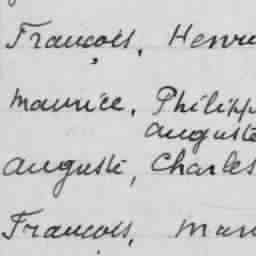 François, Henri
Maurice, Philipp
Auguste
Auguste, Charles
François, Mar